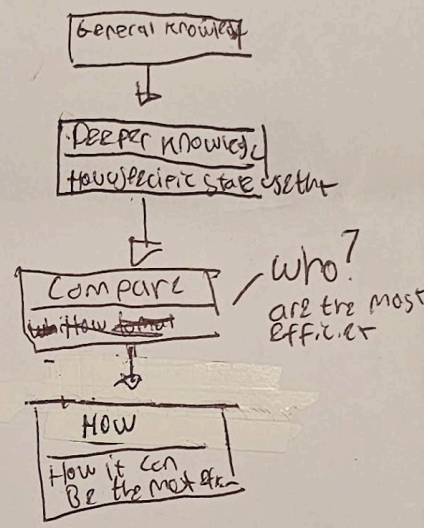 General Knowledge
Deeper Knowledge
How specific State use that
Compare
How
who?
are the most
efficiet
How
How it can
Be the most